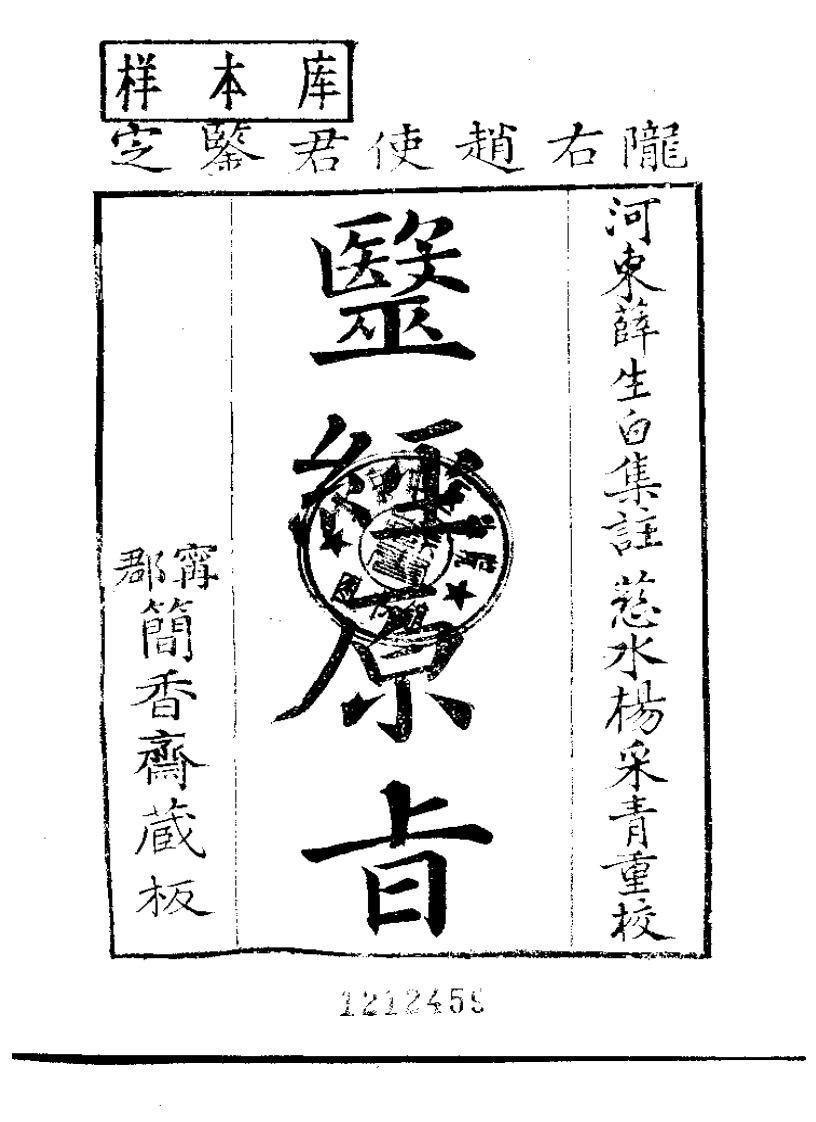 样本库
隴右趙使君鑒定
河東薛生白集註 慈水楊采青重校
毉經原旨
甯郡簡香齋蔵板
1212459